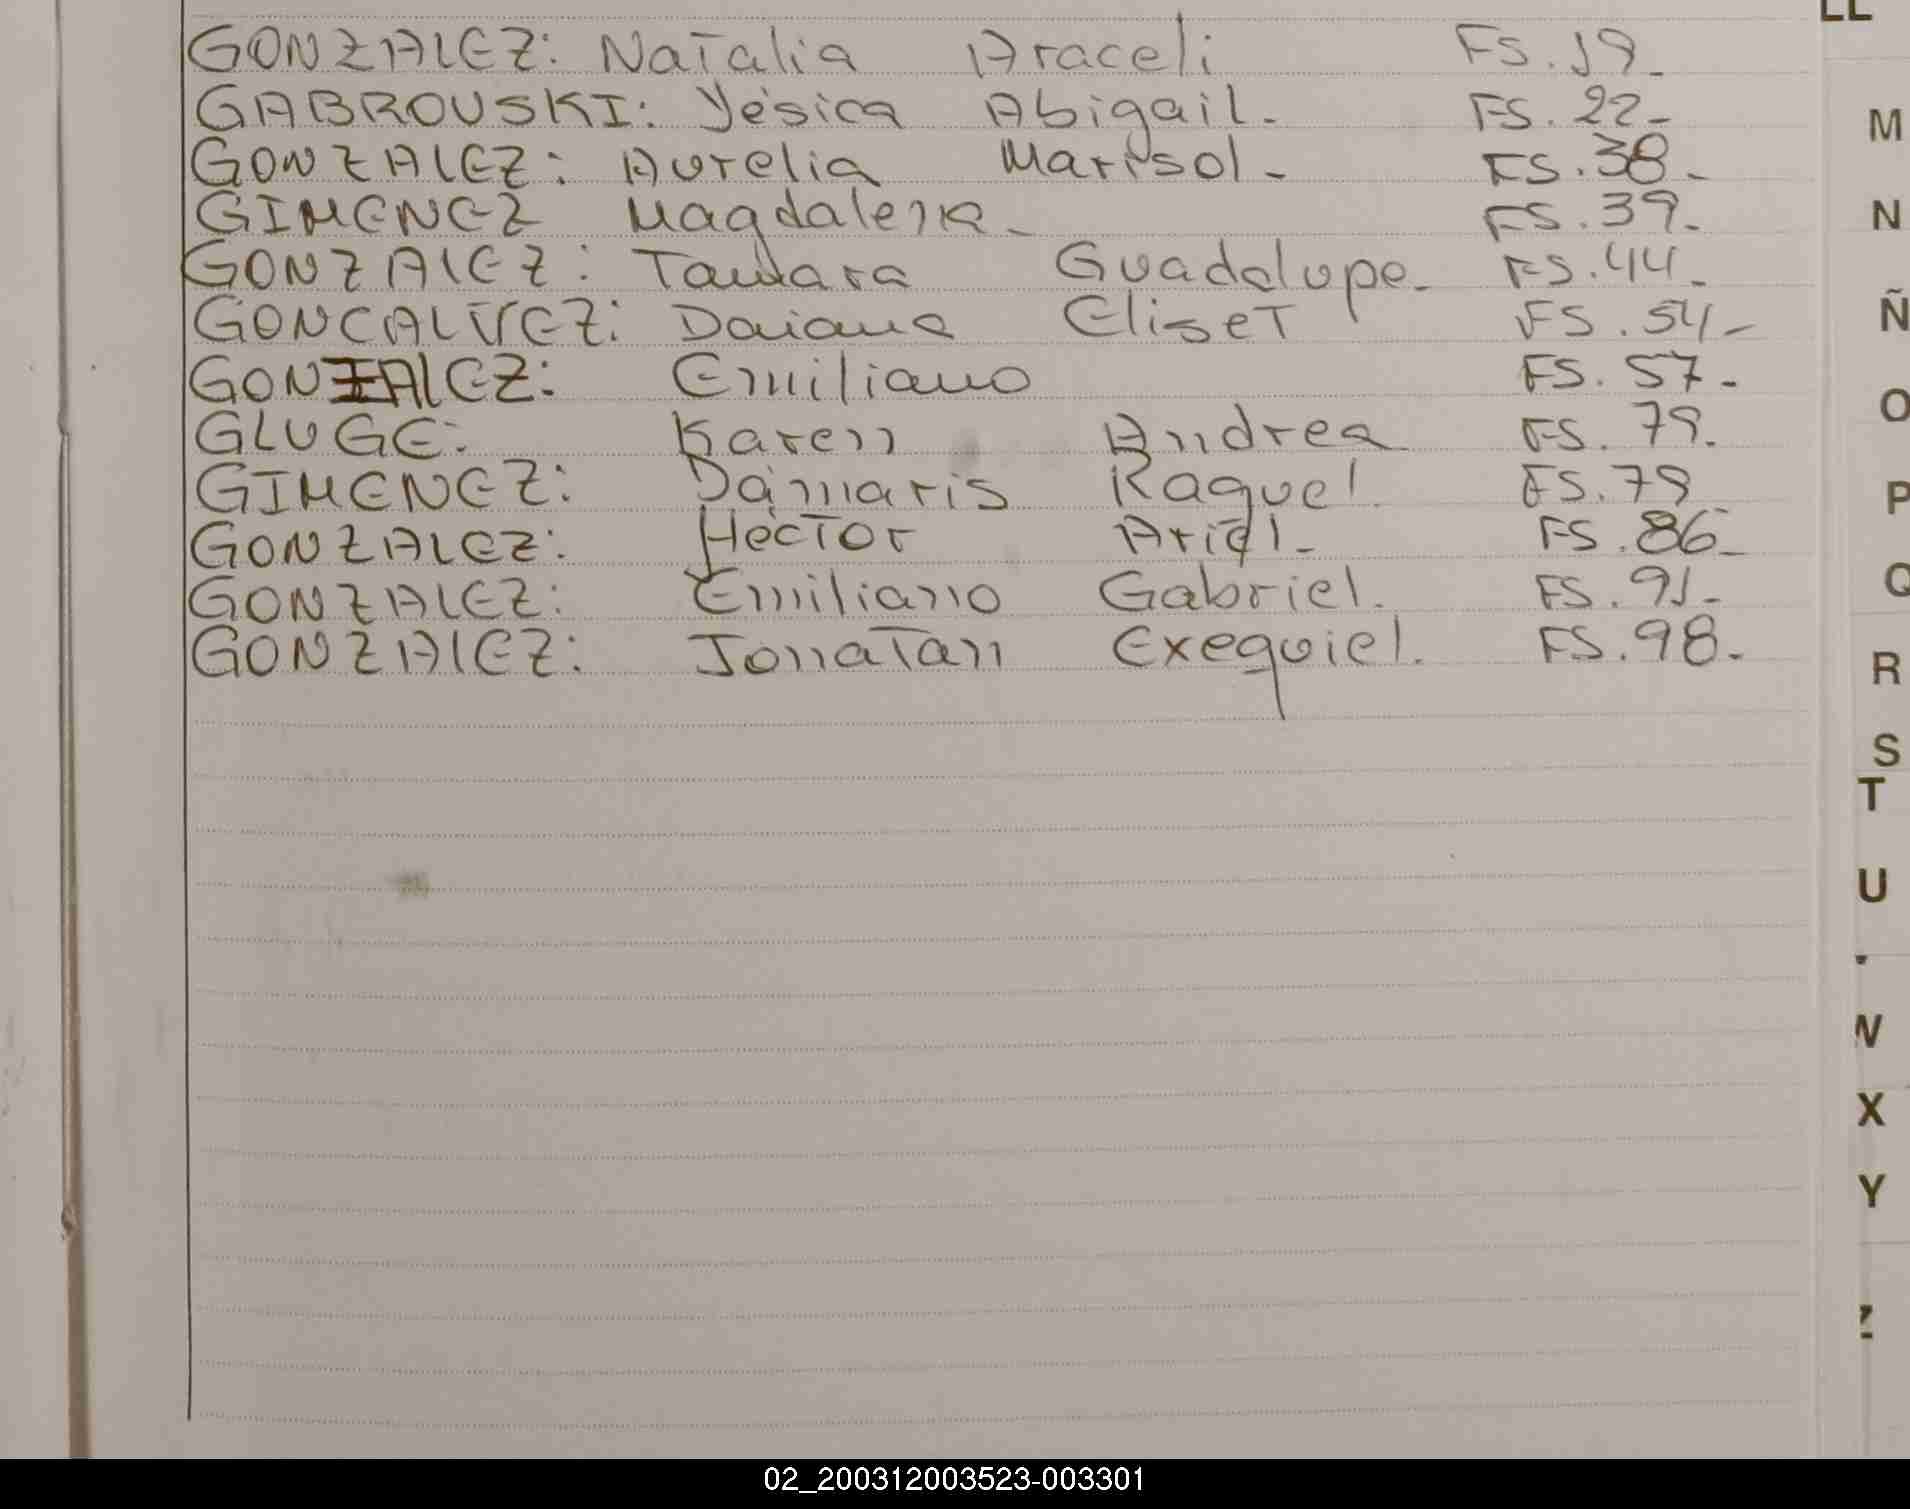 LL
GONZALEZ: Natalia Araceli FS. 19-
GABROUSKI: Yésica Abigail. FS. 22-
GONZALEZ: Aurelia Marisol- FS. 38-
GIMENEZ Magdalena- FS. 39-
GONZALEZ: Tamara Guadalupe- FS. 44-
GONCALVEZ: Daiana Eliset FS. 54-
GONZALEZ: Emiliano FS. 57-
GLUGE: Karen Andrea FS. 79.
GIMENEZ: Dámaris Raquel. FS. 79
GONZALEZ: Héctor Ariel- FS. 86-
GONZALEZ: Emiliano Gabriel. FS. 91-
GONZALEZ: Jonatan Exequiel. FS. 98-
M
N
Ñ
O
P
Q
R
S
T
U
W
X
Y
Z
02_200312003523-003301